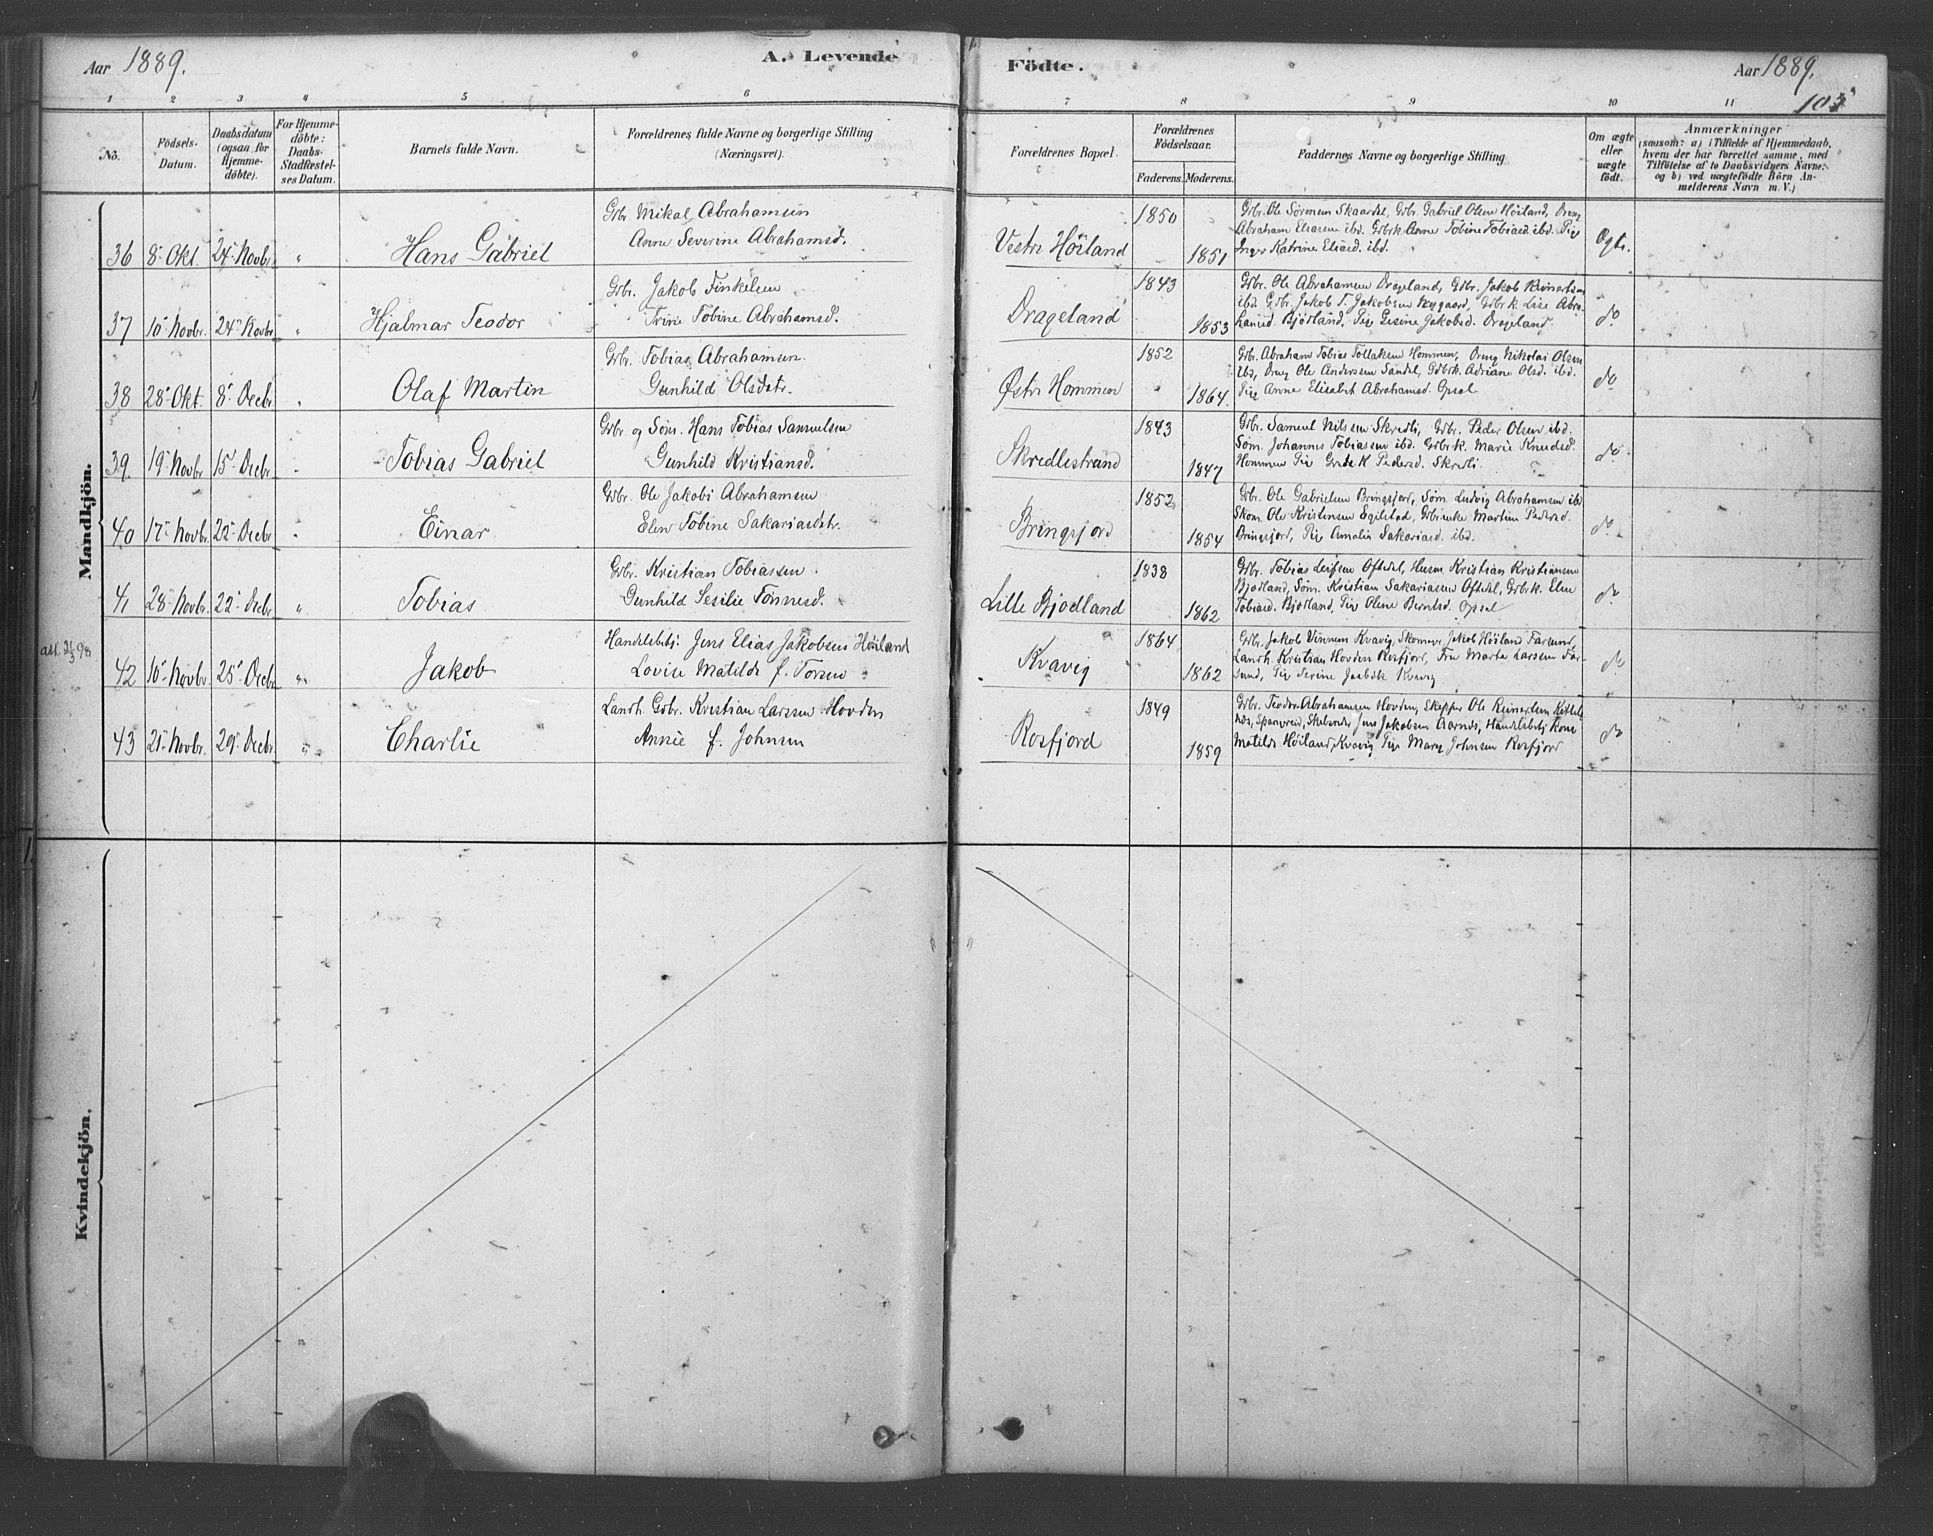 Aar 1889.
A. Levende
Födte.
Aar 1889.
103
1 2 3 4 5 6 7 8 9 10 11
No.
Födsels-
Datum.
Daabsdatum
(ogsaa for
Hjemme-
döbte).
For Hjemme-
döbte:
Daabs-
Stadfæstel-
ses Datum.
Barnets fulde Navn.
Forældrenes fulde Navne og borgerlige Stilling
(Næringsvei).
Forældrenes Bopæl.
Forældrenes
Födselsaar.
Faderens. Moderens.
Faddernes Navne og borgerlige Stilling.
Om ægte
eller
uægte
födt.
Anmærkninger
(saasom: a) i Tilfælde af Hjemmedaab,
hvem der har forrettet samme, med
Tilföielse af to Daabsvidners Navne;
og b) ved uægtefödte Börn An-
melderens Navn m. V.)
Mandkjön.
36 8 Okt. 24 Novbr. " Hans Gabriel
Gbr. Mikal Abrahamsen
Anne Severine Abrahamsd.
Vestr Höiland
1850
1851
Gbr. Ole Sörensen Skaardal, Gbr. Gabriel Olsen Höiland, Dreng
Abraham Eliassen ibd. Gbrk. Anne Tobine Tobiasd ibd. Pig
Inger Katrine Eliasd. ibd.
Ægte.
37 10 Novbr. 24 Novbr. " Hjalmar Teodor
Gbr. Jakob Finkelsen
Trine Tobine Abrahamsd.
Drageland
1843
1853
Gbr. Ole Abrahamsen Drageland, Gbr. Jakob Reinertsen
ibd. Gbr. Jakob T. Jakobsen Nygaard, Gbrk. Lise Abra-
hamsd. Björland, Pig Gesine Jakobsd. Drageland.
do.
38 28 Okt. 8 Decbr. " Olaf Martin
Gbr. Tobias Abrahamsen.
Gunhild Olsdatr.
Østr Hommen
1852
1864.
Gbr. Abraham Tobias Tollaksen Hommen, Dreng Nikolai Olsen
ibd, Dreng Ole Andersen Sandal, Gbrk. Adriane Olsd. ibd.
Pig Anne Elisabet Abrahamsd. Opsal
do
39. 19 Novbr. 15 Decbr. " Tobias Gabriel
Gbr. og Söm. Hans Tobias Samuelsen
Gunhild Kristiansd.
Skredlestrand
1843
1847
Gbr. Samuel Nilssen Skredli, Gbr. Peder Olsen ibd.
Söm. Johannes Tobiassen ibd. Gbrk. Marie Knudsd.
Hommen Pig K Pedersd. Skredli.
do.
40 17 Novbr. 22 Decbr. " Einar
Gbr. Ole Jakobi Abrahamsen
Elen Tobine Sakariasdtr.
Bringsjord
1852
1854
Gbr. Ole Gabrielsen Bringsjord, Söm. Ludvig Abrahamsen ib
Skom. Ole Kristensen Egilstad, Gbrenke Martine Pedersd.
Bringsjord, Pig Amalia Sakariasd. ibd.
do.
41 28 Novbr. 22 Decbr. " Tobias
Gbr. Kristian Tobiassen
Gunhild Sesilie Tönnesd.
Lille Bjodland
1838
1862
Gbr. Tobias Leifsen Oftedal, Husm. Kristian Kristiansen
Bjodland, Söm. Kristian Sakariassen Oftedal, Gbrk. Elen
Tobiasd. Bjodland, Pig Olene Berntsd. Opsal
do.
att. 31/3 98
42 10 Novbr. 25 Decbr. " Jakob
Handelsbetj. Jens Elias Jakobsen Höiland
Lovise Matilde f. Torsen
Kvavig
1864
1862
Gbr. Jakob Vinnem Kvavig, Skomagr Jakob Höiland Farsund,
Landh. Kristian Hovden Rosfjord, Fru Marta Larssen Far-
sund, Pig Serine Kvavig.
do
43 21 Novbr. 29 Decbr. " Charlie
Landh. Gbr. Kristian Larssen Hovden
Annie f. Johnsen
Rosfjord
1849
1859
Gbr. Teodor Abrahamsen Hovden, Skipper Ole Reinertsen
Spangreid, Jens Jakobsen Aarnes, Handelsbetj. Kone
Matilde Höiland, Kvavig Pig Mary Johnsen Rosfjord
do
Kvindekjön.